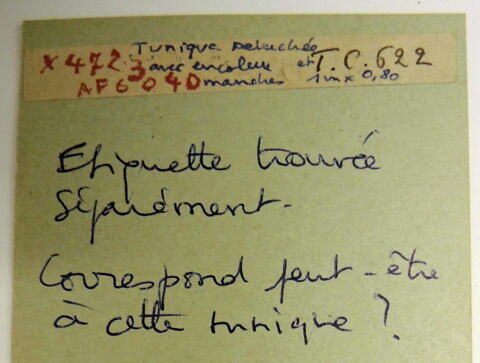 Tunique peluchée
X 4723 avec encolure et T.C. 622
AF6040 manches 1m x 0,80
Etiquette trouvée
séparément.
Correspond peut-être
à cette tunique ?